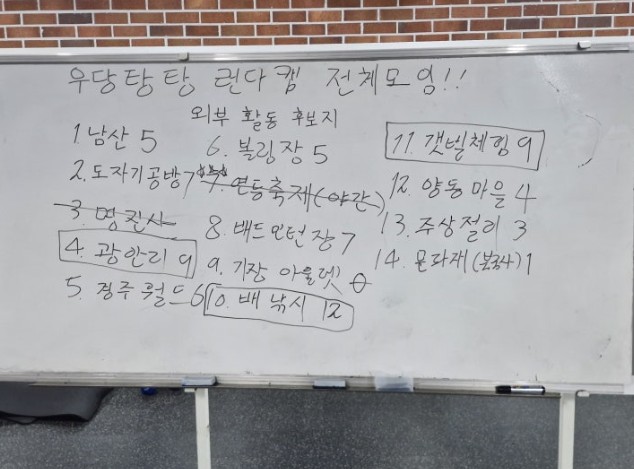 우당탕탕 린다캠 전체모임!!
외부 활동 후보지
1. 남산 5
2. 도자기공방 7
3. 명진사
4. 광안리 9
5. 경주월드 6
6. 볼링장 5
7. 연등축제(야간)
8. 배드민턴장 7
9. 기장 아울렛 0
10. 배 낚시 12
11. 갯벌체험 9
12. 양동마을 4
13. 주상절리 3
14. 문화재(불국사) 1